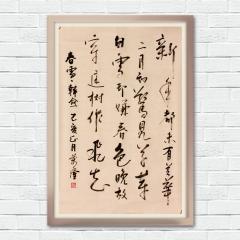 新年都未有芳華
二月初驚見草芽
白雪却嫌春色晚故
穿庭樹作飛花
春雪·韓愈 己亥正月